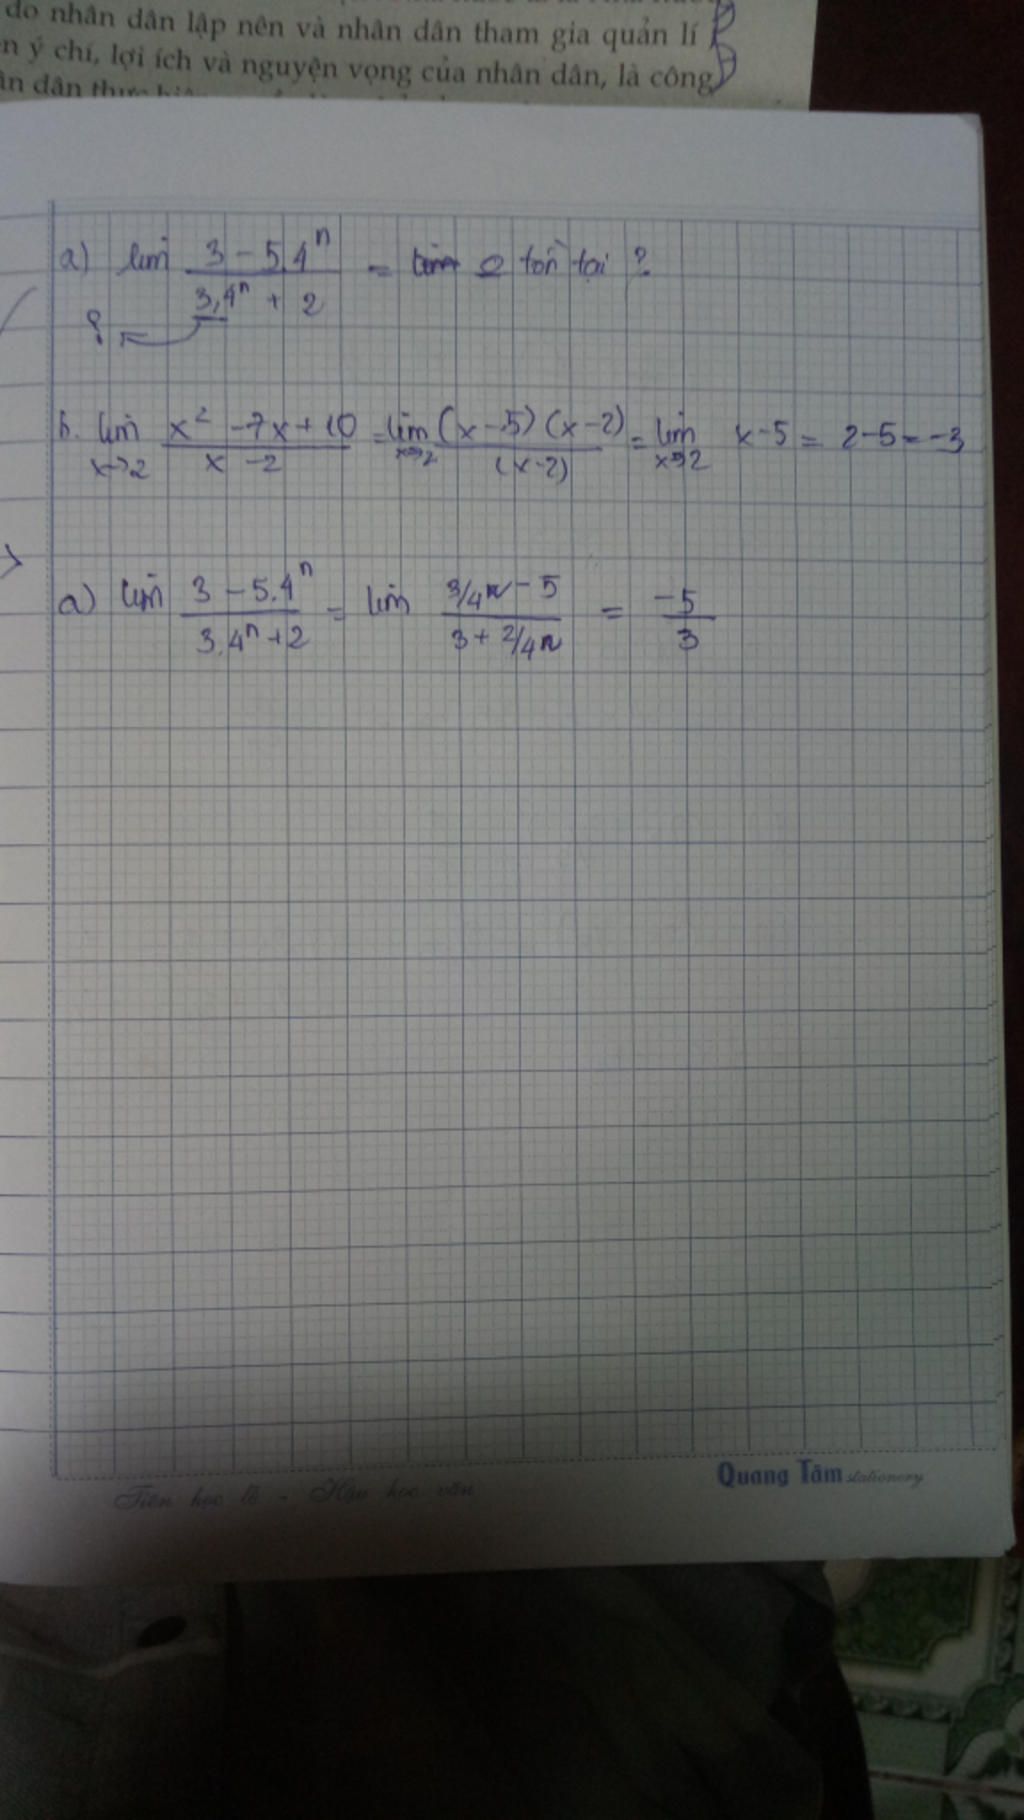 do nhân dân lập nên và nhân dân tham gia quản lí
n ý chí, lợi ích và nguyện vọng của nhân dân, là công
ân dân thực hiện
a) lim (3 - 5.4^n)/(3.4^n + 2) = 0 tồn tại ?
?
b. lim x→2 (x² - 7x + 10)/(x - 2) = lim x→2 (x-5)(x-2)/(x-2) = lim x→2 x-5 = 2-5 = -3
a) lim (3 - 5.4^n)/(3.4^n + 2) = lim (3/4^n - 5)/(3 + 2/4^n) = -5/3
Tiên học lễ - Hậu học văn
Quang Tâm stationery